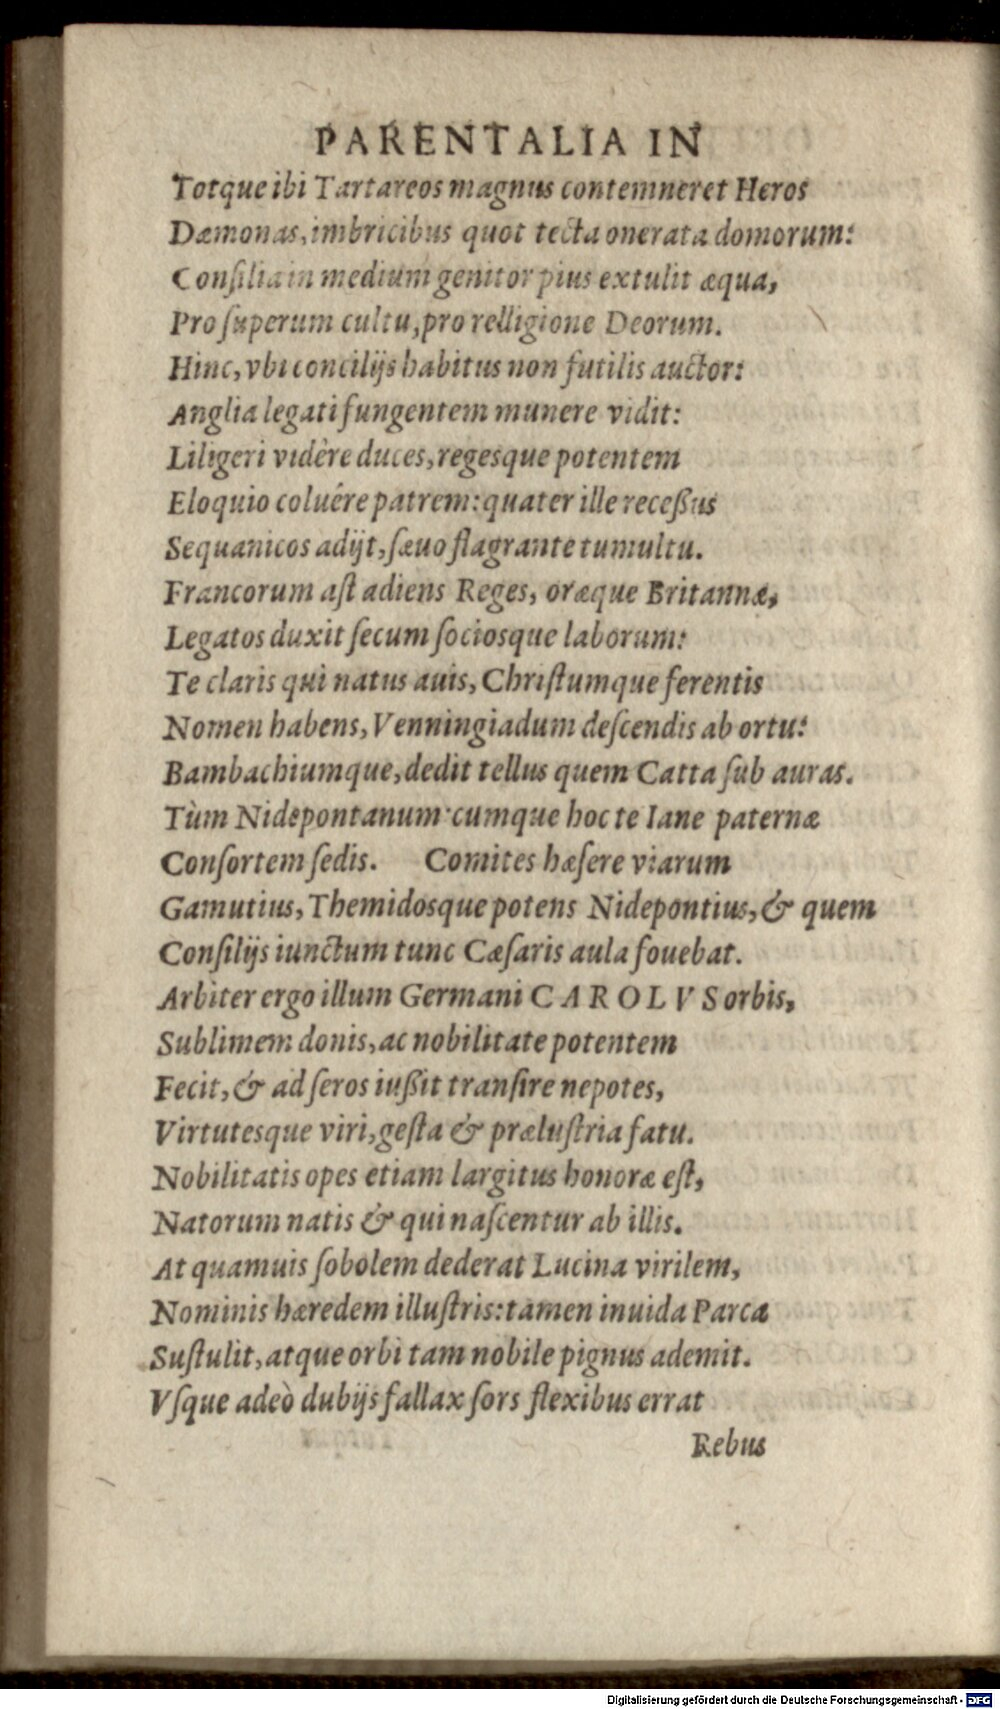 PARENTALIA IN
Totque ibi Tartareos magnus contemneret Heros
Dæmonas, imbricibus quot tecta onerata domorum:
Conſilia in medium genitor pius extulit æqua,
Pro ſuperum cultu, pro relligione Deorum.
Hinc, vbi concilijs habitus non futilis auctor:
Anglia legati fungentem munere vidit:
Liligeri vidère duces, regesque potentem
Eloquio coluêre patrem: quater ille receßus
Sequanicos adijt, ſæuo flagrante tumultu.
Francorum aſt adiens Reges, oræque Britannæ,
Legatos duxit ſecum ſociosque laborum:
Te claris qui natus auis, Chriſtumque ferentis
Nomen habens, Venningiadum deſcendis ab ortu:
Bambachiumque, dedit tellus quem Catta ſub auras.
Tùm Nidepontanum cumque hoc te Iane paternæ
Conſortem ſedis. Comites hæſere viarum
Gamutius, Themidosque potens Nidepontius, & quem
Conſilijs iunctum tunc Cæſaris aula fouebat.
Arbiter ergo illum Germani CAROLVS orbis,
Sublimem donis, ac nobilitate potentem
Fecit, & ad ſeros iußit tranſire nepotes,
Virtutesque viri, geſta & præluſtria fatu.
Nobilitatis opes etiam largitus honoræ eſt,
Natorum natis & qui naſcentur ab illis.
At quamuis ſobolem dederat Lucina virilem,
Nominis hæredem illuſtris: tamen inuida Parca
Suſtulit, atque orbi tam nobile pignus ademit.
Vſque adeò dubijs fallax ſors flexibus errat
Rebus
Digitalisierung gefördert durch die Deutsche Forschungsgemeinschaft - DFG